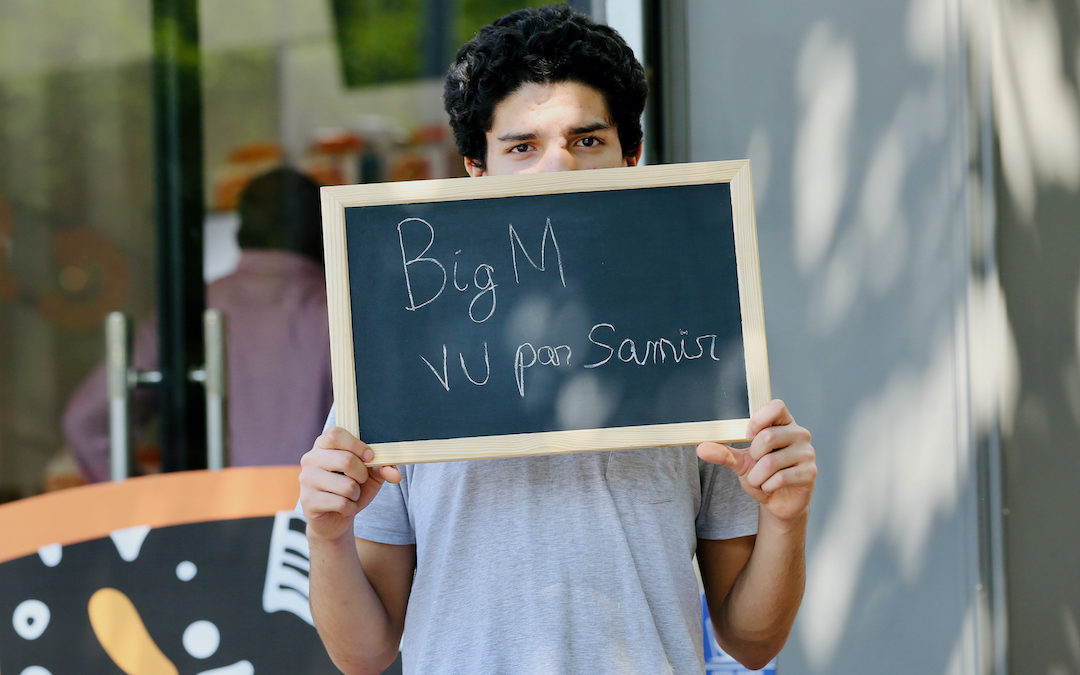 Big M
VU par Samir